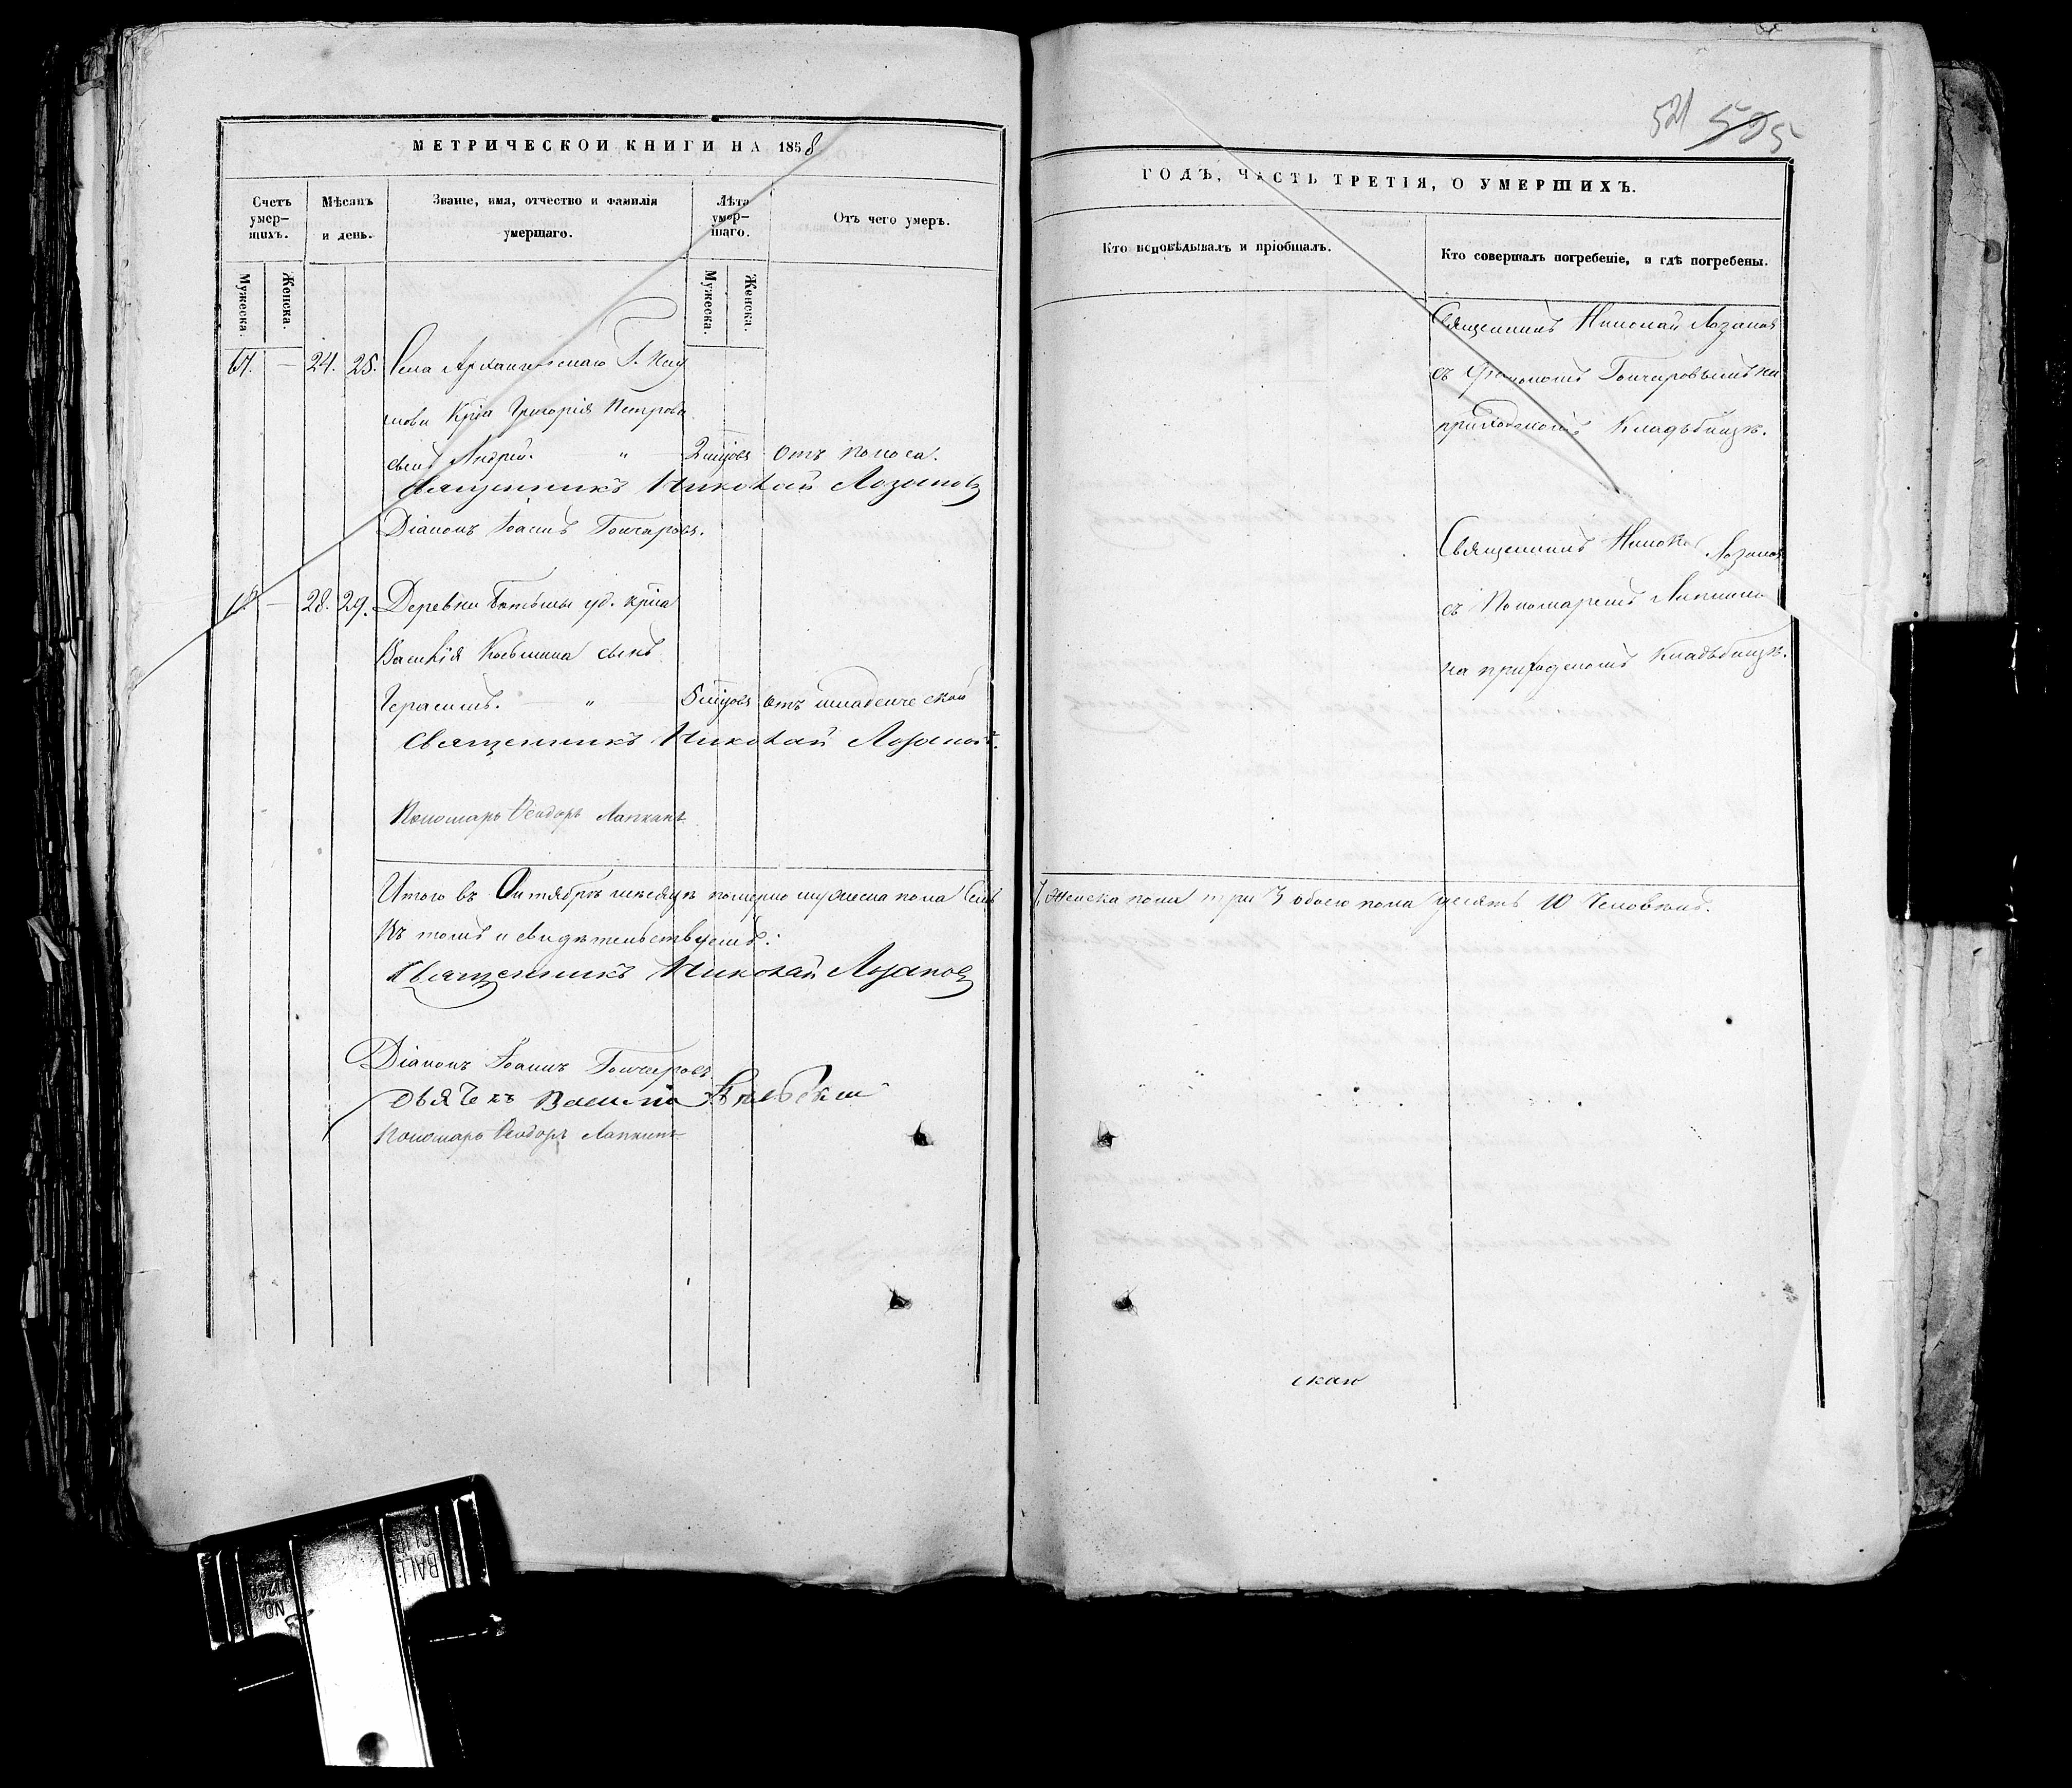 МЕТРИЧЕСКОЙ КНИГИ НА 1858
Счетъ умер-шихъ.
Мужеска.
Женска.
Мѣсяцъ и день.
Званіе, имя, отчество и фамилія умершаго.
Лѣта умер-шаго.
Мужеска.
Женска.
Отъ чего умеръ.
24. 25. Села Архангельскаго Г.
Кр҃на Григорія Петрова
сынъ Андрей. " 2 мцовъ отъ поноса.
Священникъ Николай Лозановъ
Діаконъ Іоаннъ Гончаровъ.
28. 29. Деревни уд. кр҃на
Василія Козьмина сынъ
Герасимъ. " 5 мцовъ отъ младенческой
Священникъ Николай Лозановъ.
Пономарь Ѳеодоръ Лапкинъ
Итого въ Октябрѣ мѣсяцѣ померло мужеска пола семь
Къ томъ и свидѣтельствуемъ:
Священникъ Николай Лозановъ
Діаконъ Іоаннъ Гончаровъ
Дьячекъ Василій
Пономарь Ѳеодоръ Лапкинъ
521 525
ГОДЪ, ЧАСТЬ ТРЕТІЯ, О УМЕРШИХЪ.
Кто исповѣдывалъ и пріобщалъ.
Кто совершалъ погребеніе, и гдѣ погребены.
Священникъ Николай Лозановъ
съ Діакономъ Гончаровымъ на
приходскомъ кладбищѣ.
Священникъ Николай Лозановъ
съ Пономаремъ Лапкинымъ
на приходскомъ кладбищѣ.
7, женска пола три 3 обоего пола десять 10 человѣкъ.
скаго